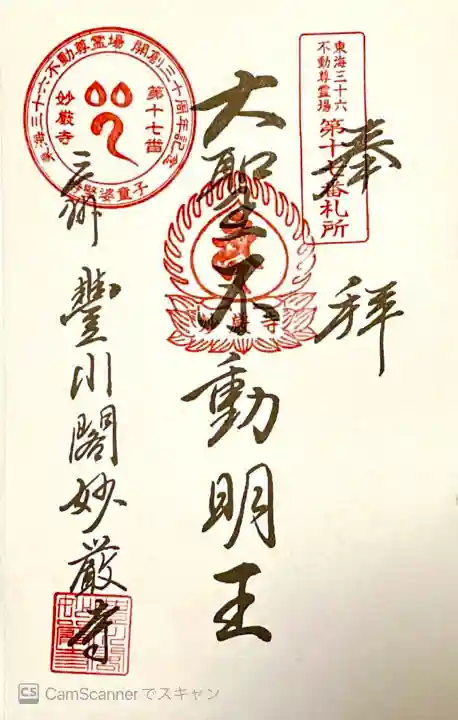 東海三十六
不動尊霊場
第十七番札所
奉拝
大聖不動明王
妙嚴寺
東海三十六不動尊霊場 開創三十周年記念
第十七番
妙厳寺
婆童子
三州
豐川閣妙嚴寺
CS CamScannerでスキャン